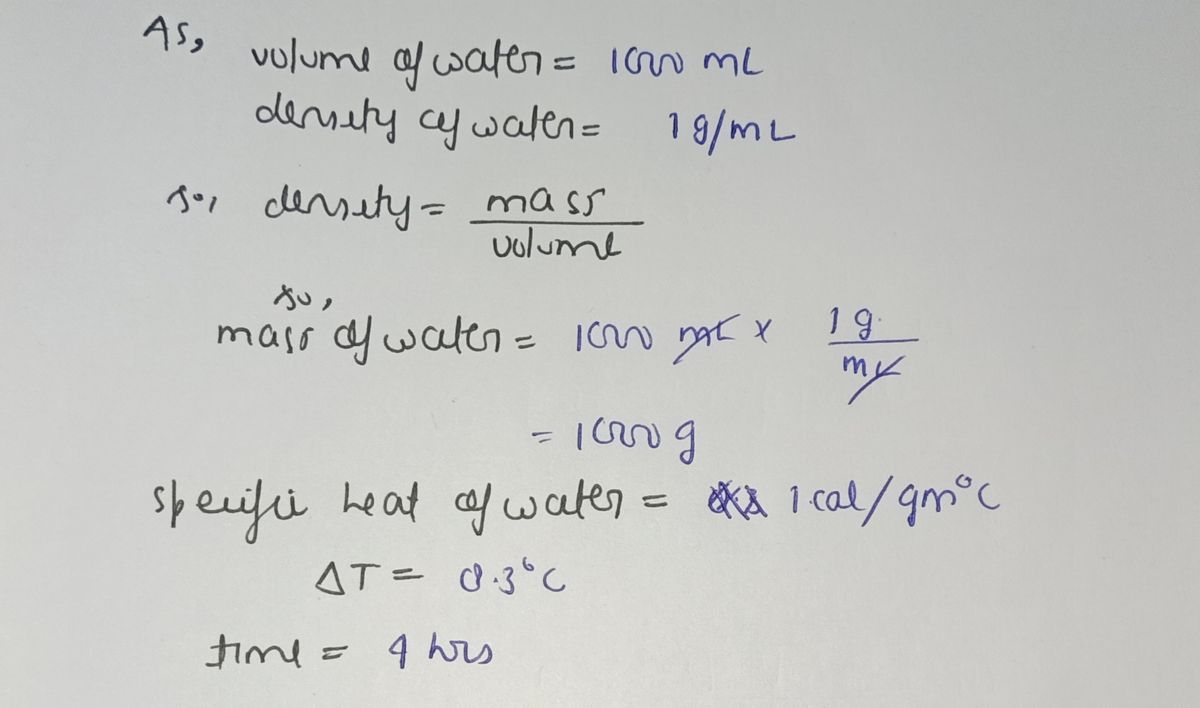 As,
volume of water = 1000 mL
density of water = 1 g/mL
so, density = mass
volume
so,
mass of water = 1000 mL x 1 g
mL
= 1000 g
specific heat of water = 1 cal/gm°C
ΔT = 0.3°C
time = 4 hrs